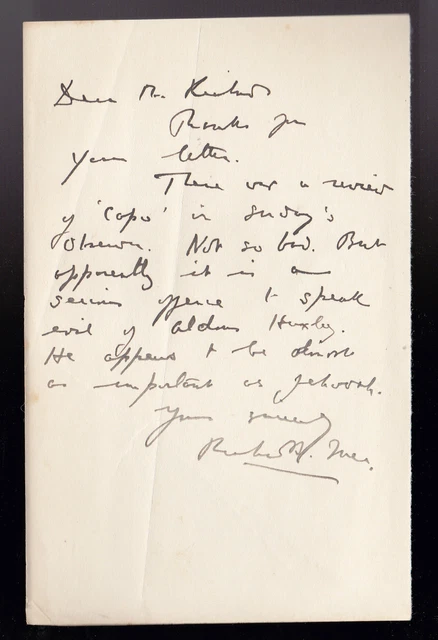 Dear Mr.
Thanks for
Your letter.
There was a review
of 'Capo' in Sunday's
Observer. Not so bad. But
apparently it is a
serious offence to speak
evil of Aldous Huxley.
He appears to be almost
as important as Jehovah.
Yours sincerely